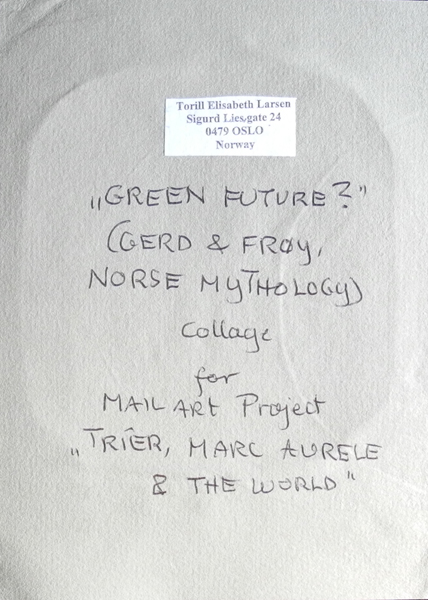 Torill Elisabeth Larsen
Sigurd Lies gate 24
0479 OSLO
Norway
„GREEN FUTURE?"
(GERD & FRØY,
NORSE MYTHOLOGY)
Collage
for
MAIL ART Project
„TRIER, MARC AURELE
& THE WORLD"